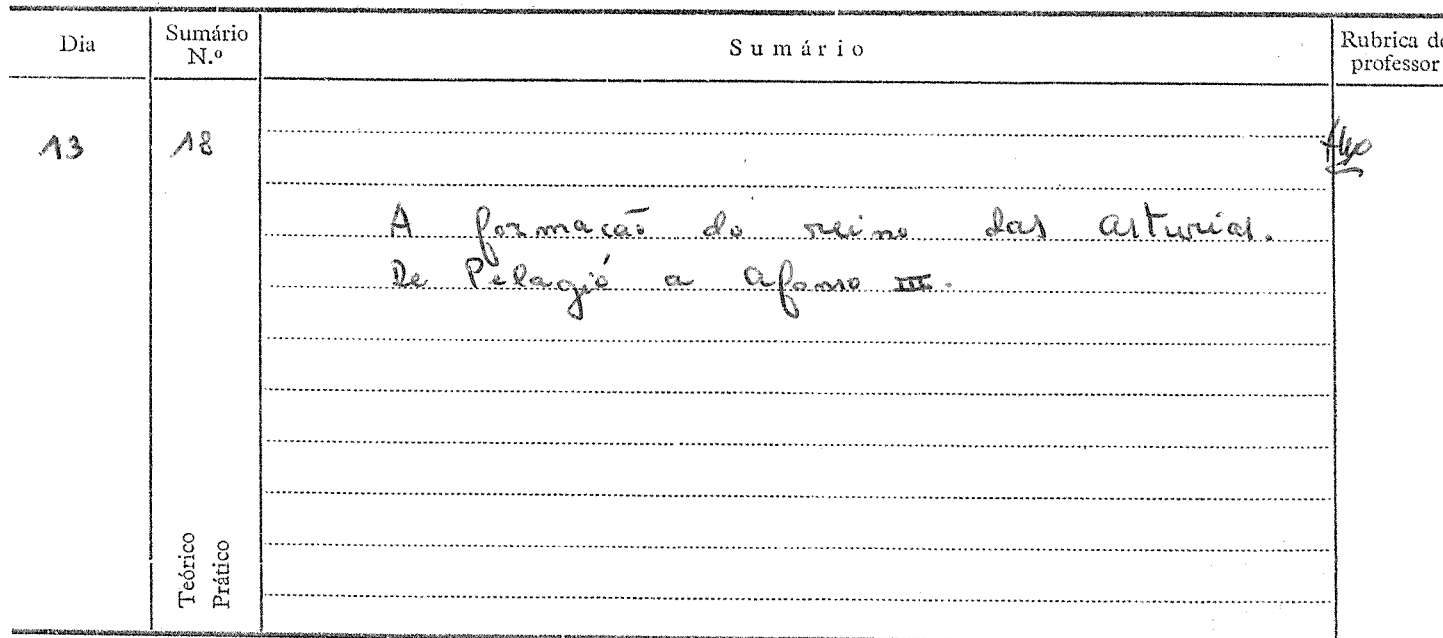 Dia
Sumário
N.º
Sumário
Rubrica do
professor
13
18
A formação do reino das Asturias.
De Pelagio a Afonso III.
Teórico
Prático